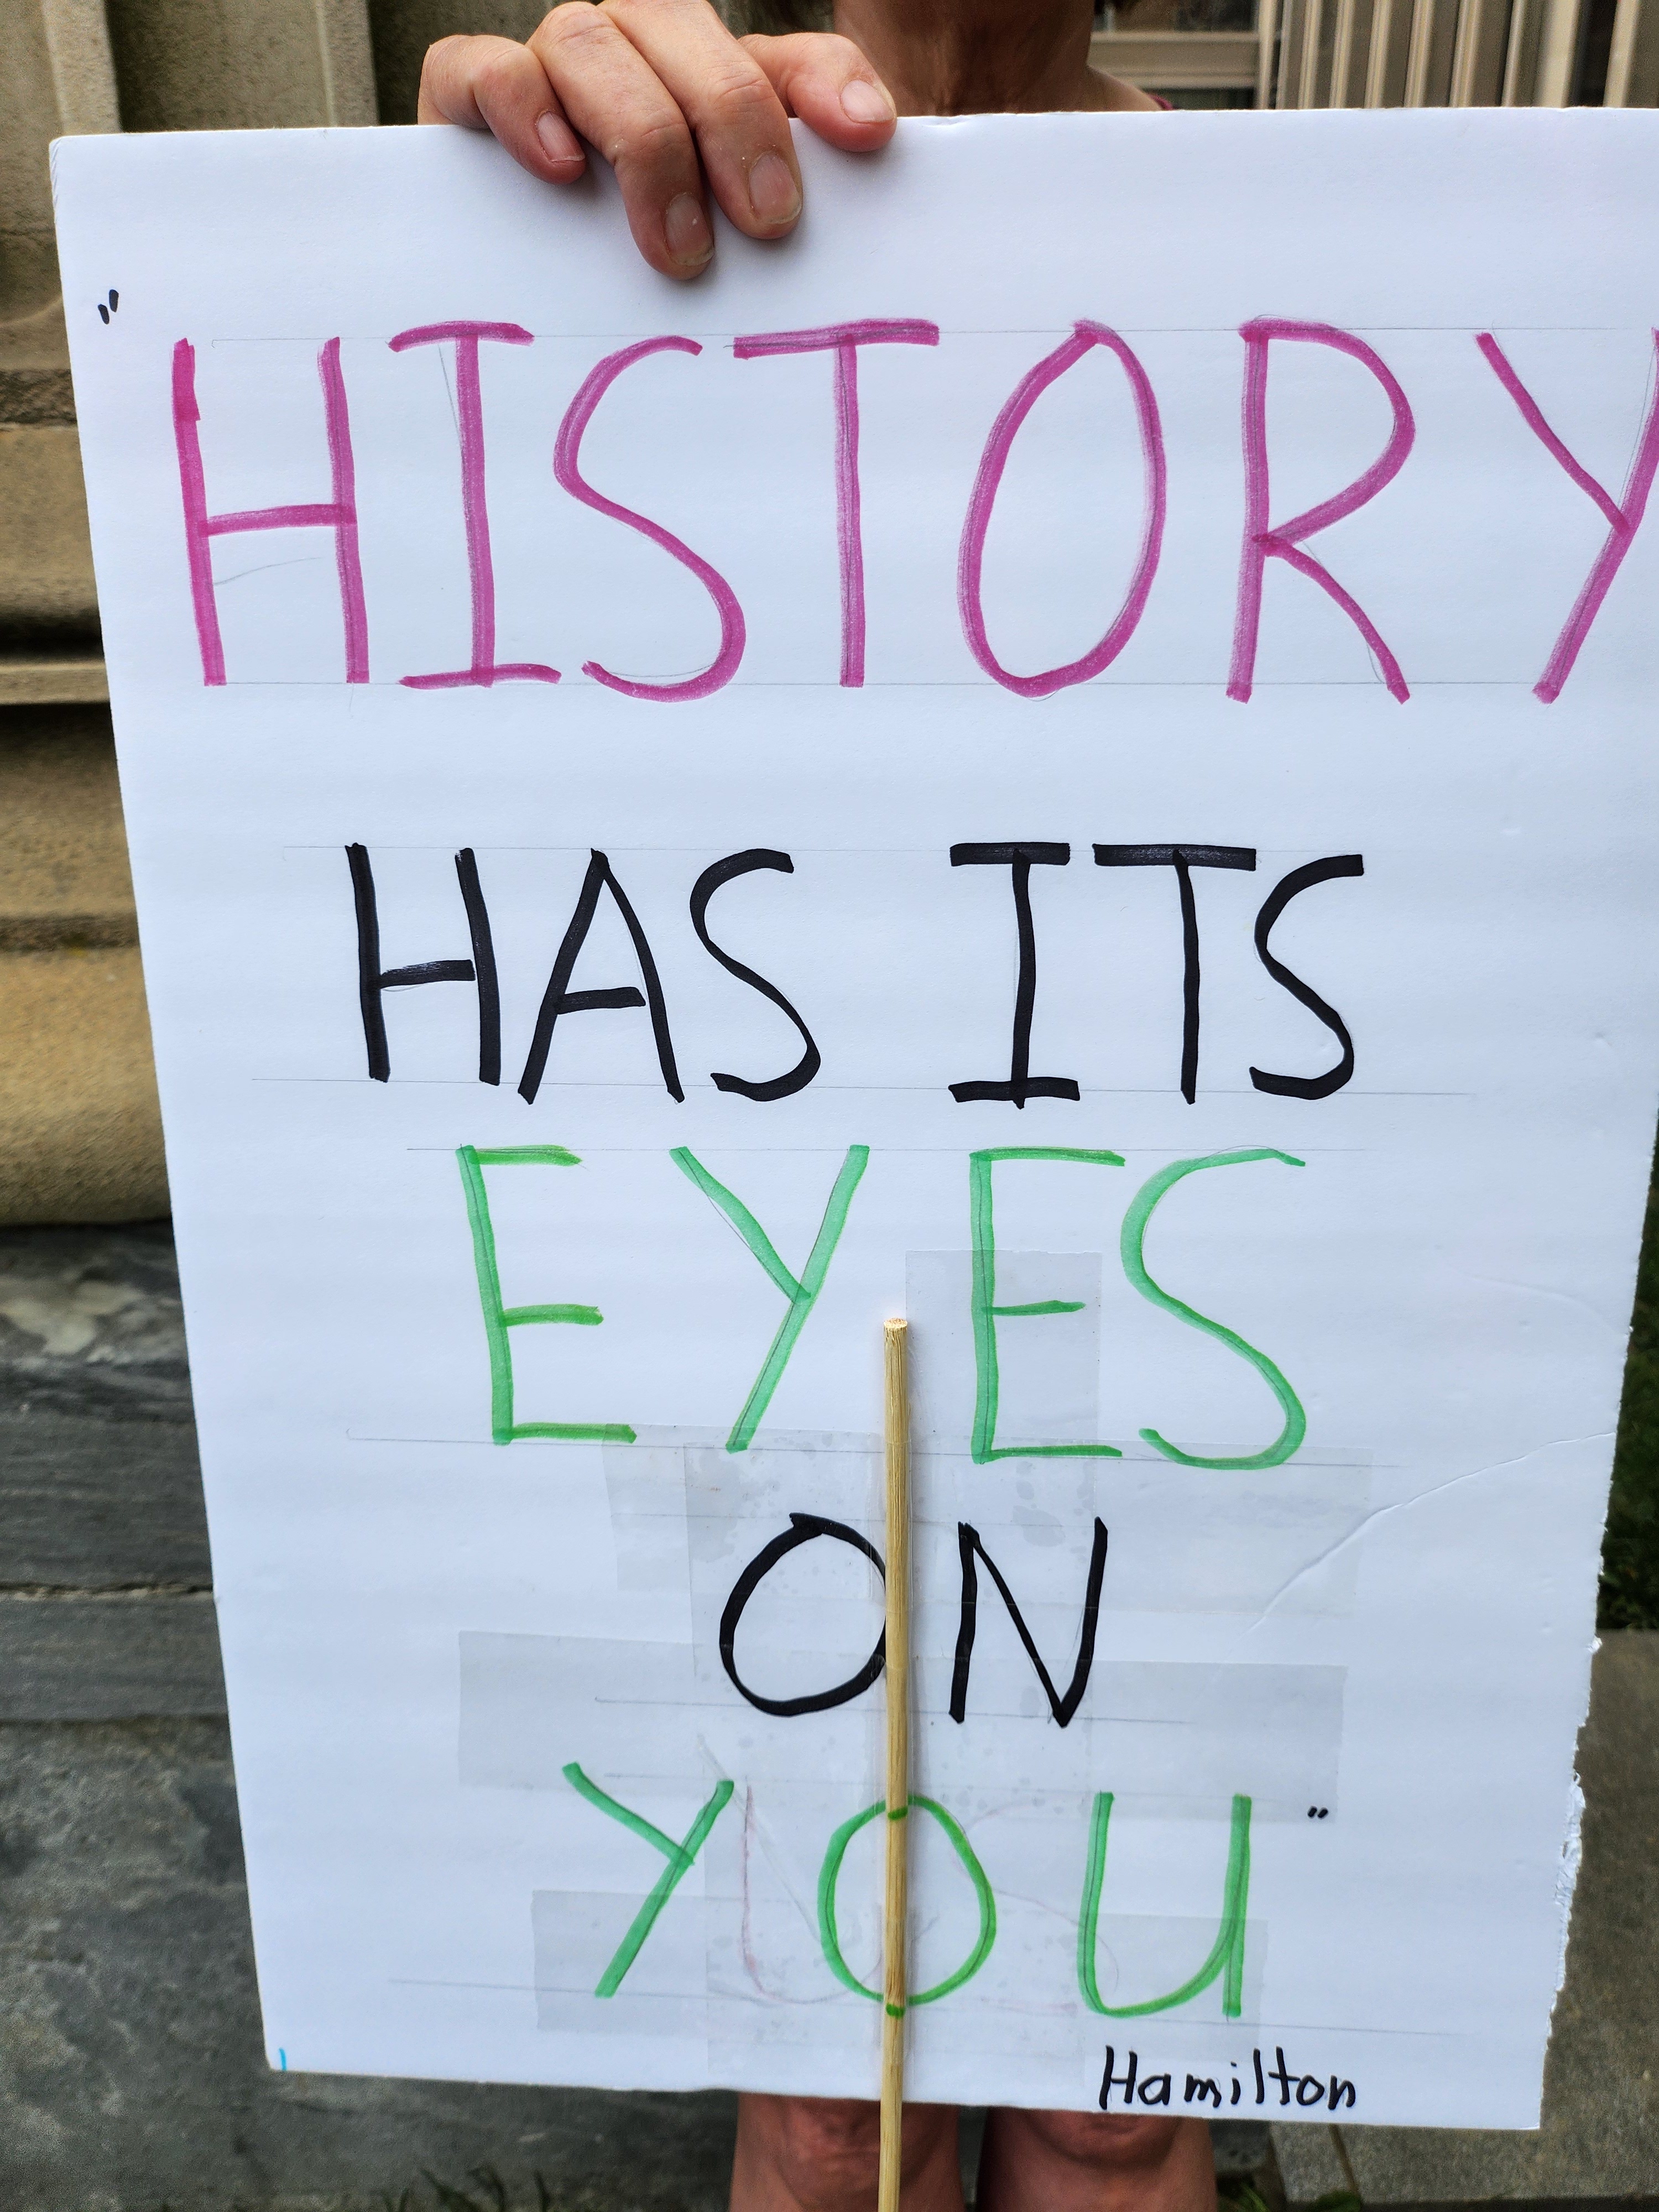 "HISTORY
HAS ITS
EYES
ON
YOU"
Hamilton